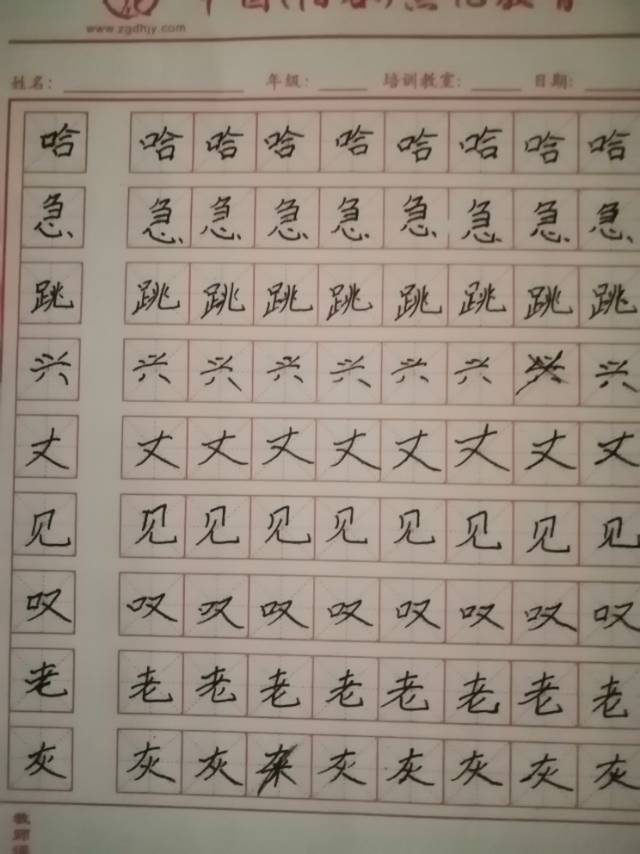 www.zgdhjy.com
姓名: 年级: 培训教室: 日期:
哈 哈 哈 哈 哈 哈 哈 哈 哈
急 急 急 急 急 急 急 急 急
跳 跳 跳 跳 跳 跳 跳 跳 跳
兴 兴 兴 兴 兴 兴 兴 兴 兴
丈 丈 丈 丈 丈 丈 丈 丈 丈
见 见 见 见 见 见 见 见 见
叹 叹 叹 叹 叹 叹 叹 叹 叹
老 老 老 老 老 老 老 老 老
灰 灰 灰 灰 灰 灰 灰 灰
教师评